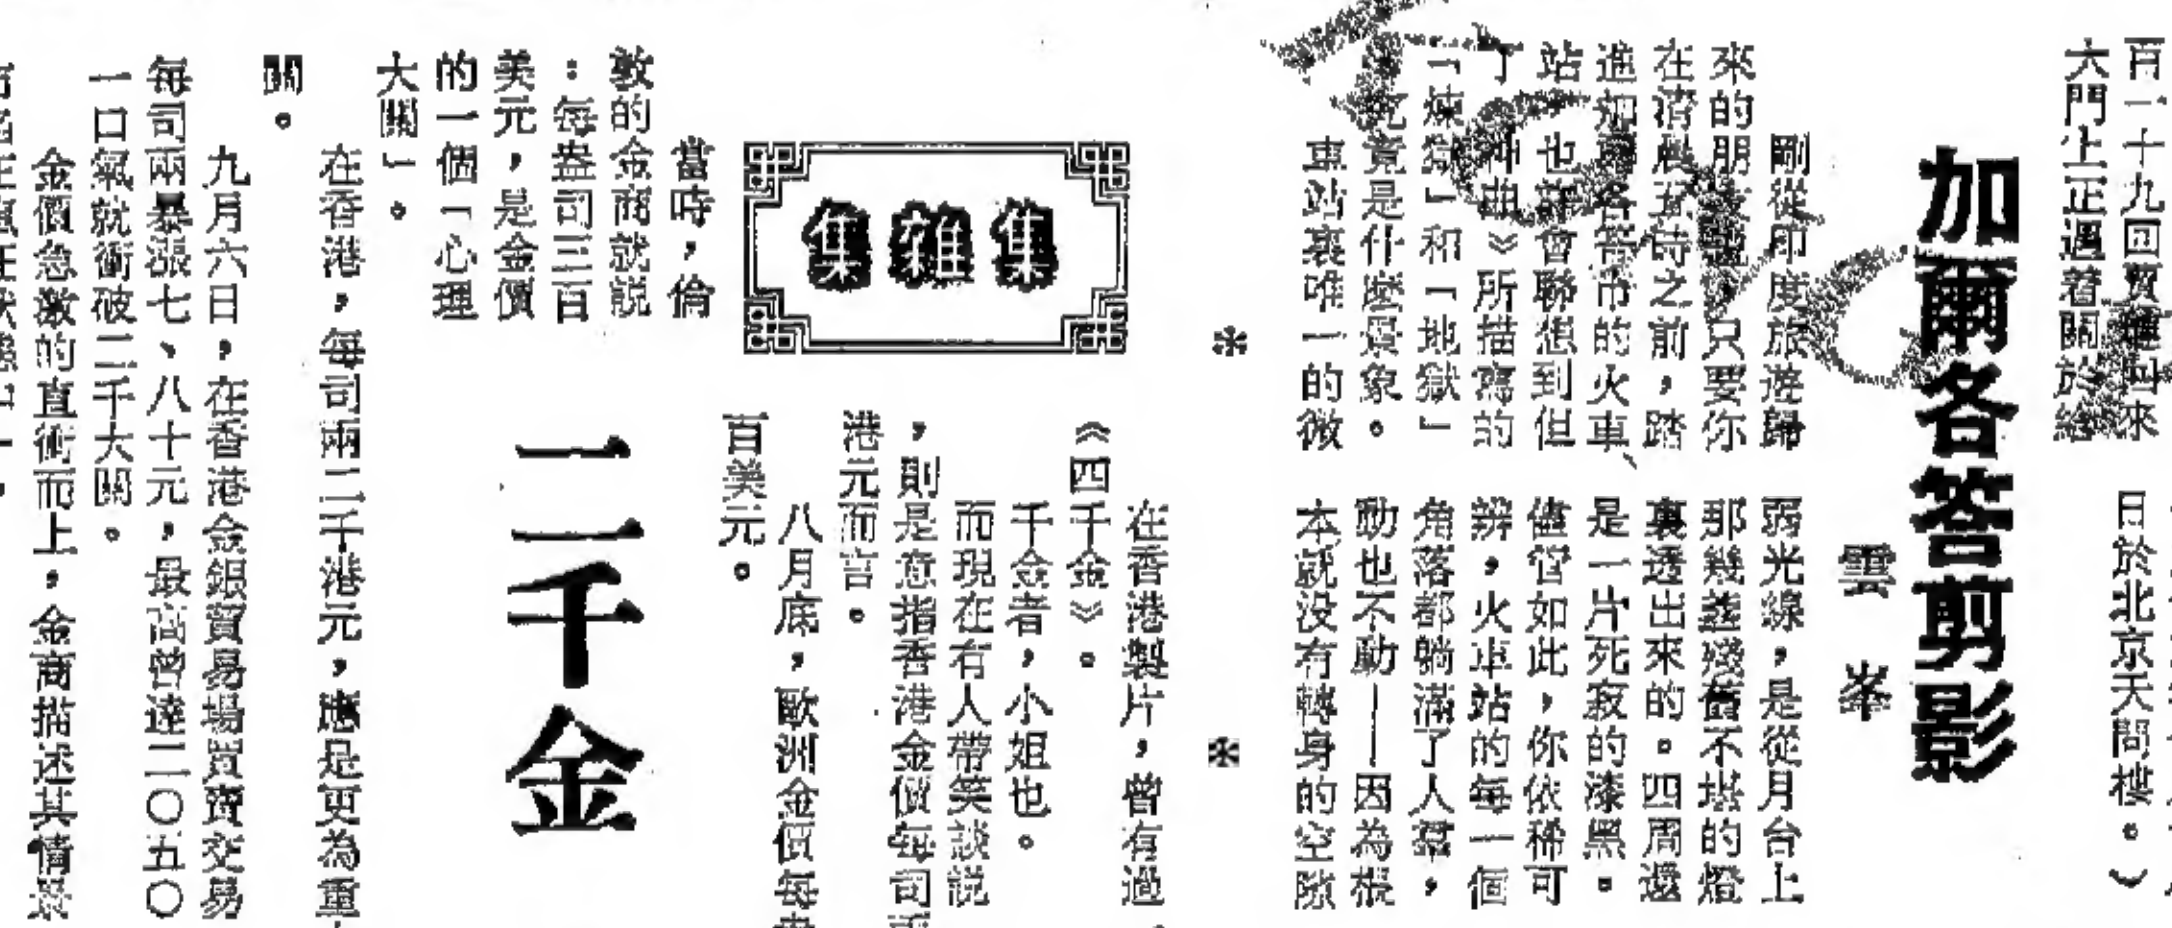 百一十九回賈
六門上正遇着關於
日於北京天問樓。）
加爾各答剪影
雲峯
剛從印度旅遊歸
來的朋友，只要你
在清晨五時之前，踏
進加爾各答市的火車
站，也許會聯想到但
丁《神曲》所描寫的
「煉獄」和「地獄」
究竟是什麼景象。
車站裏唯一的微
弱光線，是從月台上
那幾盞殘舊不堪的燈
裏透出來的。四周還
是一片死寂的漆黑。
儘管如此，你依稀可
辨，火車站的每一個
角落都躺滿了人羣，
動也不動——因為根
本就没有轉身的空隙
＊
＊
集雜集
二千金
在香港製片，曾有過
《四千金》。
千金者，小姐也。
而現在有人帶笑談説
，則是意指香港金價每司兩
港元而言。
八月底，歐洲金價每
百美元。
當時，倫
敦的金商就説
：每盎司三百
美元，是金價
的一個「心理
大關」。
在香港，每司兩二千港元，應是更為重
關。
九月六日，在香港金銀貿易場買賣交易
每司兩暴漲七、八十元，最高曾達二〇五〇
一口氣就衝破二千大關。
金價急激的直衝而上，金商描述其情景